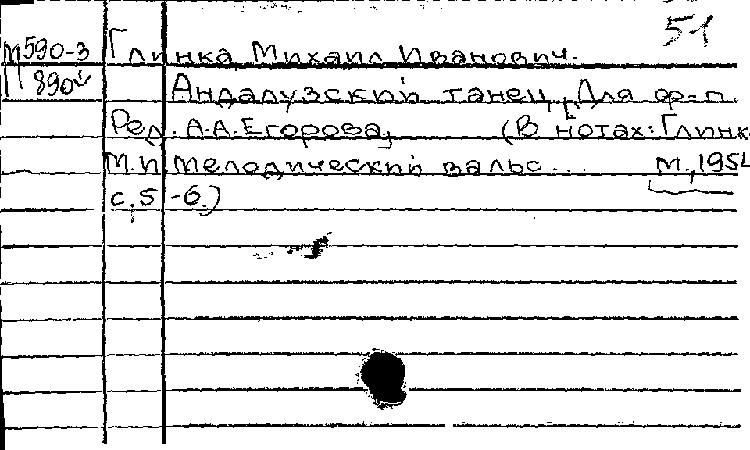 51
М590-3 Глинка, Михаил Иванович.
890 Андалузский танец. Для ф-п.
Ред. А.А.Егорова, (В нотах: Глинка
М.И. Мелодический вальс... М., 195
с. 5-6.)